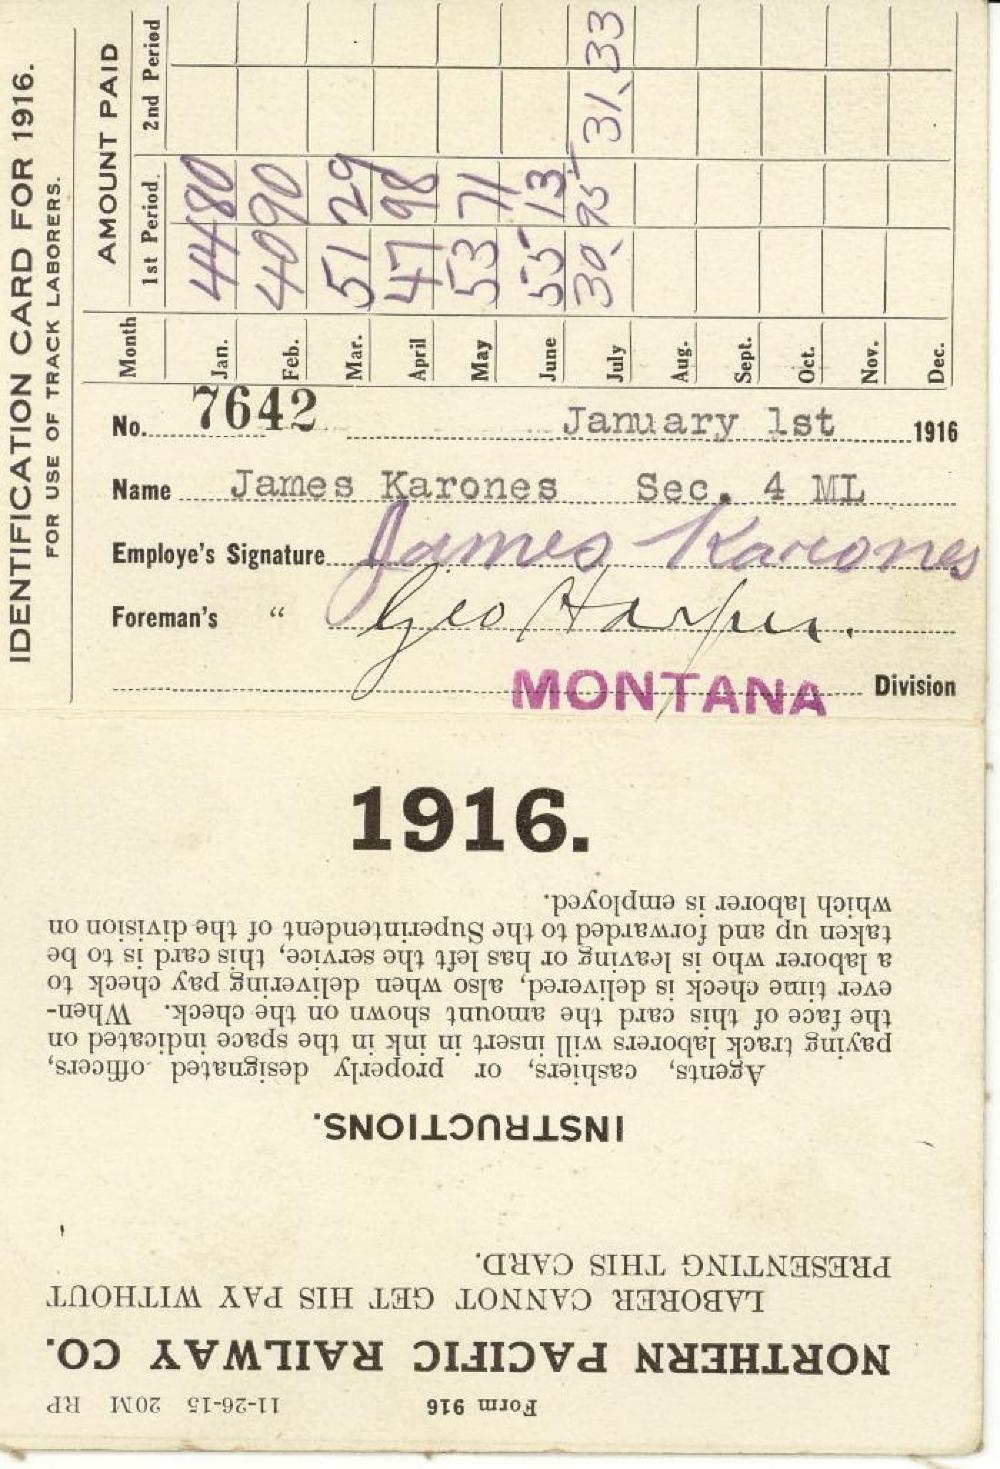 IDENTIFICATION CARD FOR 1916.
FOR USE OF TRACK LABORERS.
AMOUNT PAID
Month 1st Period. 2nd Period
Jan. 44 80
Feb. 40 90
Mar. 51 29
April 47 98
May 53 71
June 55 13
July 30.95 31.33
Aug.
Sept.
Oct.
Nov.
Dec.
No. 7642 January 1st 1916
Name James Karones Sec. 4 ML
Employe's Signature James Karones
Foreman's " Geo Harper.
MONTANA Division
1916.
Form 916 11-26-15 20M RP
NORTHERN PACIFIC RAILWAY CO.
LABORER CANNOT GET HIS PAY WITHOUT
PRESENTING THIS CARD.
INSTRUCTIONS.
Agents, cashiers, or properly designated officers,
paying track laborers will insert in ink in the space indicated on
the face of this card the amount shown on the check. When-
ever time check is delivered, also when delivering pay check to
a laborer who is leaving or has left the service, this card is to be
taken up and forwarded to the Superintendent of the division on
which laborer is employed.